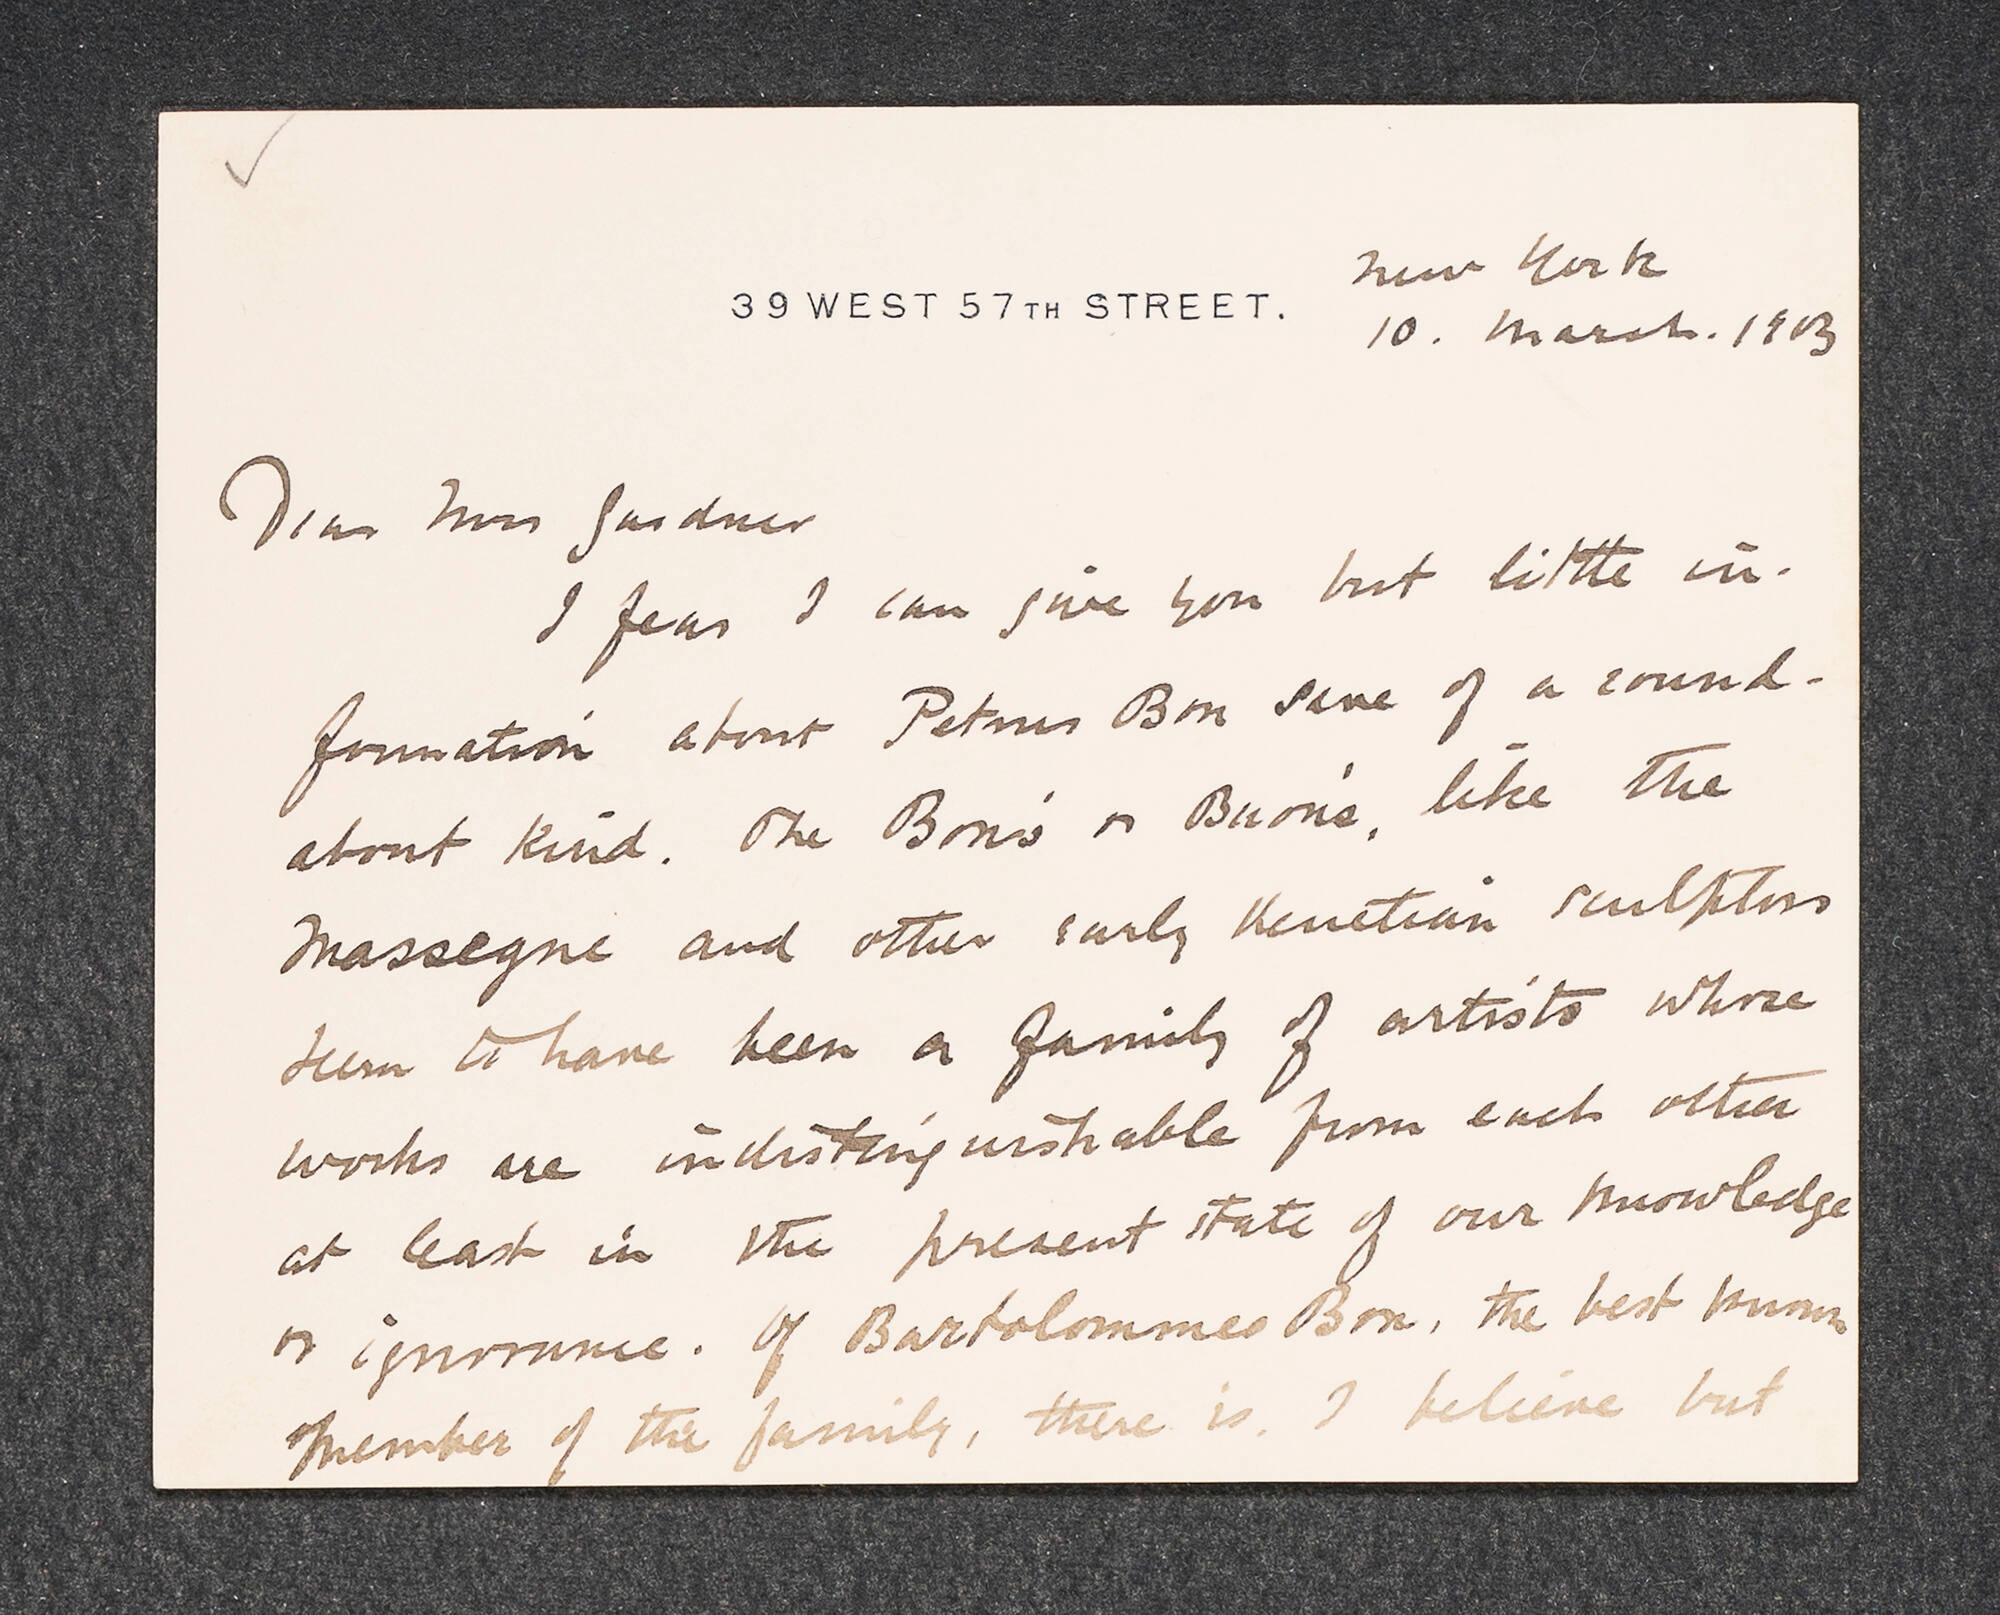 New York
39 WEST 57TH STREET.
10. March. 1903
Dear Mrs Gardner
I fear I can give you but little in-
formation about Petrus Bon save of a round-
about kind. The Bon's or Buon's, like the
Massegne and other early Venetian sculptors
seem to have been a family of artists whose
works are indistinguishable from each other
at least in the present state of our knowledge
or ignorance. Of Bartolommeo Bon, the best known
member of the family, there is, I believe but